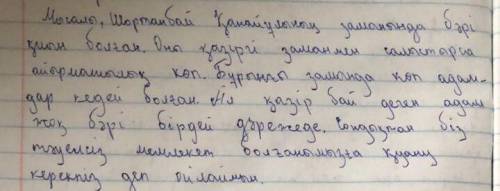 Мысалы, Шортанбай Қанайұлының заманында бәрі
қиын болған. Оны қазіргі заманмен салыстырса
айырмашылық көп. Бұрынғы заманда көп адам-
дар кедей болған. Ал қазір бай деген адам
жоқ бәрі бірдей дәрежеде. Сондықтан біз
тәуелсіз мемлекет болғанымызға қуану
керекпіз деп ойлаймын.